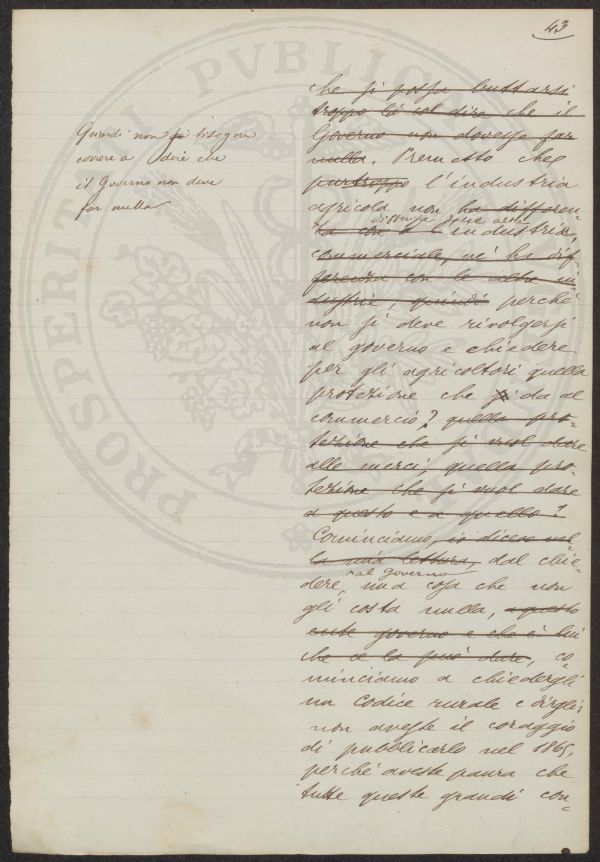 43
Quindi non si bisogna
correre a dire che
il Governo non deve
far nulla
che si possa buttarsi
troppo là col dire che il
Governo non dovesse far
nulla. Premetto che
purtroppo l'industria
agricola non ha differen-
za con l'industria
commerciale, né ha dif-
ferenza con le altre in-
dustrie, quindi perché
non si deve rivolgersi
al governo e chiedere
per gli agricoltori quella
protezione che si da al
commercio? quella pro-
tezione che si vuol dare
alle merci, quella pro-
tezione che si vuol dare
a questo e a quello?
Cominciamo, io dicevo nel-
la mia lettura, dal chie-
al governo
dere, una cosa che non
gli costa nulla, a questo
governo e che è lui
che ce la può dare, co-
minciamo a chiedergli
un Codice rurale e dirgli:
non aveste il coraggio
di pubblicarlo nel 1865,
perché aveste paura che
tutte queste grandi con-
PROSPERITATI PVBLICAE